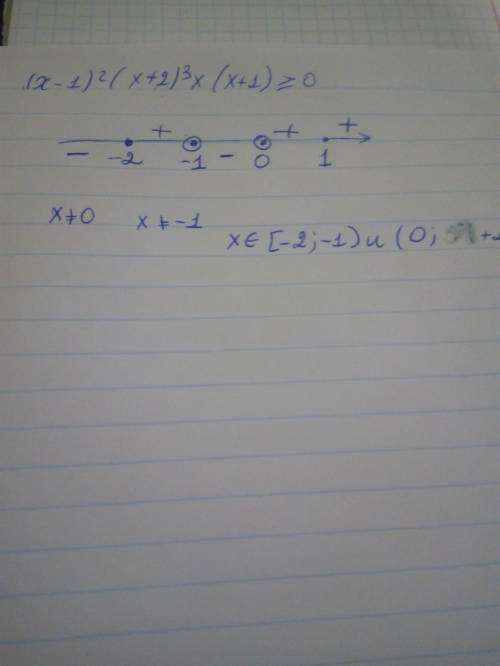 (x-1)²(x+2)³x(x+1)≥0
+ + +
- -2 -1 - 0 1
x≠0 x≠-1
x∈[-2;-1)∪(0;